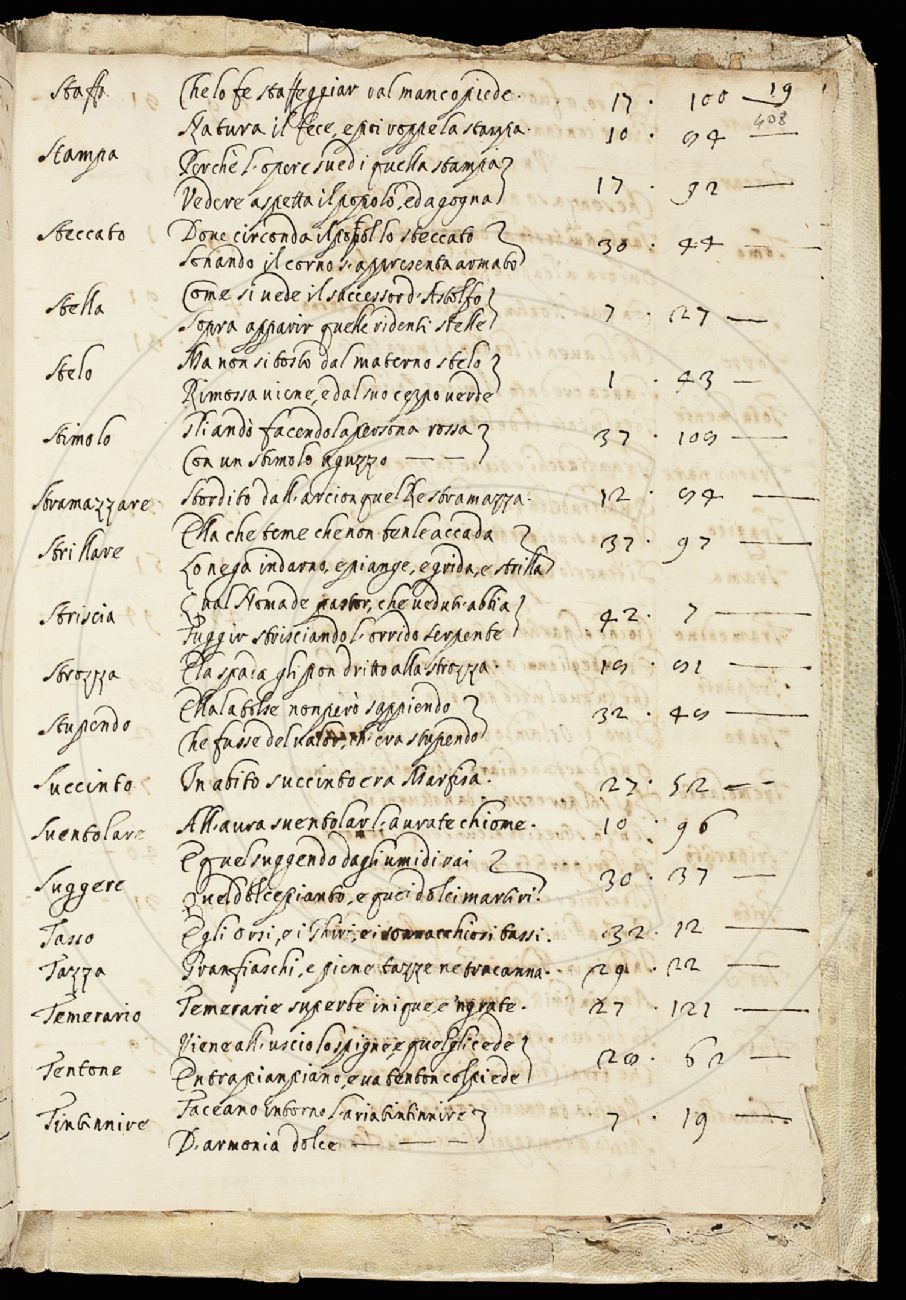 19
408
Staffa Che lo fe staffeggiar dal manco piede. 17. 100
Natura il fece, e poi roppe la stampa. 10. 84
Stampa Perchè l'opere sue di quella stampa
Vedere aspetta il popolo, ed agogna 17. 92
Steccato Dove circonda il popol lo steccato
Sonando il corno s'appresenta armato 38. 44
Stella Come si vede il successor d'Astolfo
Sopra apparir quelle ridenti stelle 7. 27
Stelo Ma non sì tosto dal materno stelo
Rimossa viene, e dal suo ceppo verde 1. 43
Stimolo Gli andò facendo la persona rossa
Con un stimolo aguzzo 37. 108
Stramazzare Stordito dall'arcion quel Re stramazza. 12. 84
Strillare Ella che teme che non ten le accada
Lo nega indarno, e piange, e grida, e strilla 37. 97
Striscia Qual Nomade pastor, che veduti abbia
Fuggir strisciando l'orrido serpente 42. 7
Strozza E la spada gli pon dritto alla strozza. 18. 81
Stupendo Ella la tolse non però sappiendo
Che fusse del valor, ch'era stupendo 32. 48
Succinto In abito succinto era Marfisa. 27. 52
Suentolare All'aura suentolar l'aurate chiome. 10. 96
E quel suggendo dagli umidi rai
Suggere Quel dolce pianto, e quei dolci martiri. 30. 37
Tasso E gli Orsi, e i Ghiri, e i sonnacchiosi tassi. 32. 12
Tazza Gran fiaschi, e piene tazze ne tracanna. 29. 22
Temerario Temerarie superbe inique, e 'ngrate. 27. 121
Viene all'uscio lo spigne, e quel gli cede
Tentone Entra pian piano, e va tenton col piede 28. 62
Tintinnire Faceano intorno l'aria tintinnire 7. 19
D'armonia dolce